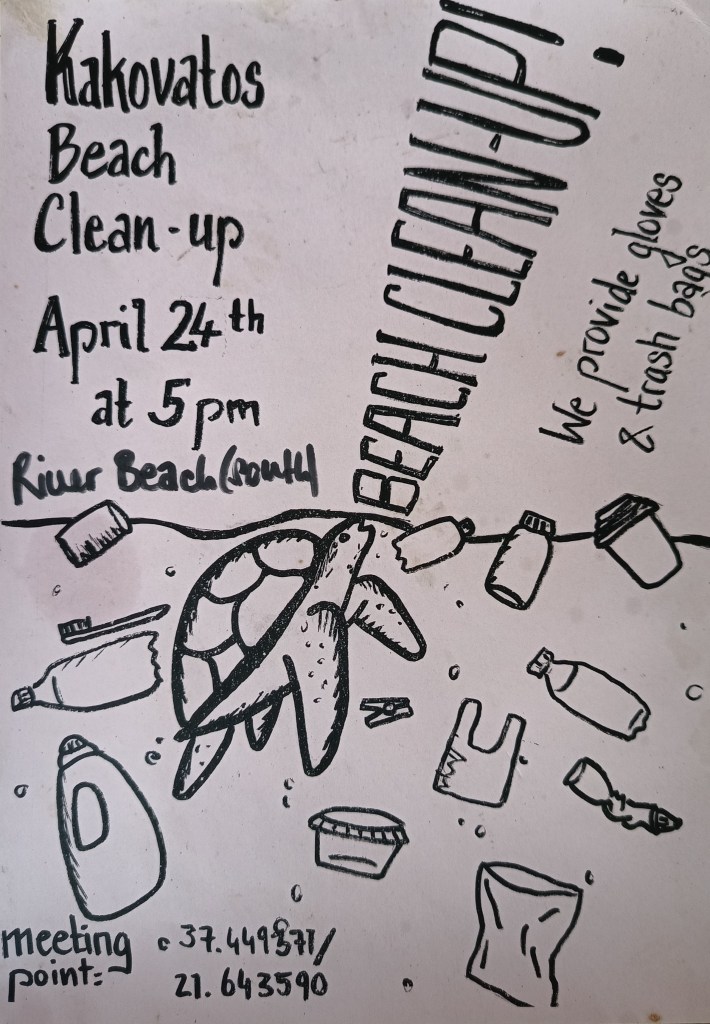 Kakovatos
Beach
Clean-up
April 24th
at 5pm
River Beach (south)
BEACH CLEAN-UP!
We provide gloves
& trash bags
meeting
point:
37.449371/
21.643590